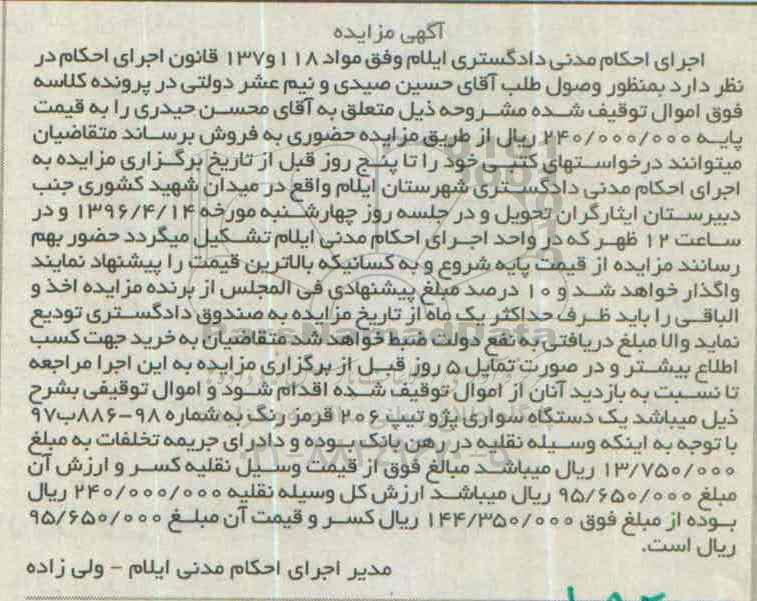 آگهی مزایده
اجرای احکام مدنی دادگستری ایلام وفق مواد ۱۱۸و۱۳۷ قانون اجرای احکام در
نظر دارد بمنظور وصول طلب آقای حسین صیدی و نیم عشر دولتی در پرونده کلاسه
فوق اموال توقیف شده مشروحه ذیل متعلق به آقای محسن حیدری را به قیمت
پایه ۲۴۰/۰۰۰/۰۰۰ ریال از طریق مزایده حضوری به فروش برساند متقاضیان
میتوانند درخواستهای کتبی خود را تا پنج روز قبل از تاریخ برگزاری مزایده به
اجرای احکام مدنی دادگستری شهرستان ایلام واقع در میدان شهید کشوری جنب
دبیرستان ایثارگران تحویل و در جلسه روز چهارشنبه مورخه ۱۳۹۶/۴/۱۴ و در
ساعت ۱۲ ظهر که در واحد اجرای احکام مدنی ایلام تشکیل میگردد حضور بهم
رسانند مزایده از قیمت پایه شروع و به کسانیکه بالاترین قیمت را پیشنهاد نمایند
واگذار خواهد شد و ۱۰ درصد مبلغ پیشنهادی فی المجلس از برنده مزایده اخذ و
الباقی را باید ظرف حداکثر یک ماه از تاریخ مزایده به صندوق دادگستری تودیع
نماید والا مبلغ دریافتی به نفع دولت ضبط خواهد شد متقاضیان به خرید جهت کسب
اطلاع بیشتر و در صورت تمایل ۵ روز قبل از برگزاری مزایده به این اجرا مراجعه
تا نسبت به بازدید آنان از اموال توقیف شده اقدام شود و اموال توقیفی بشرح
ذیل میباشد یک دستگاه سواری پژو تیپ ۲۰۶ قرمز رنگ به شماره ۹۸-۸۸۶ب۹۷
با توجه به اینکه وسیله نقلیه در رهن بانک بوده و دادرای جریمه تخلفات به مبلغ
۱۳/۷۵۰/۰۰۰ ریال میباشد مبالغ فوق از قیمت وسیل نقلیه کسر و ارزش آن
مبلغ ۹۵/۶۵۰/۰۰۰ ریال میباشد ارزش کل وسیله نقلیه ۲۴۰/۰۰۰/۰۰۰ ریال
بوده از مبلغ فوق ۱۴۴/۳۵۰/۰۰۰ ریال کسر و قیمت آن مبلغ ۹۵/۶۵۰/۰۰۰
ریال است.
مدیر اجرای احکام مدنی ایلام - ولی زاده
ParsNamadData